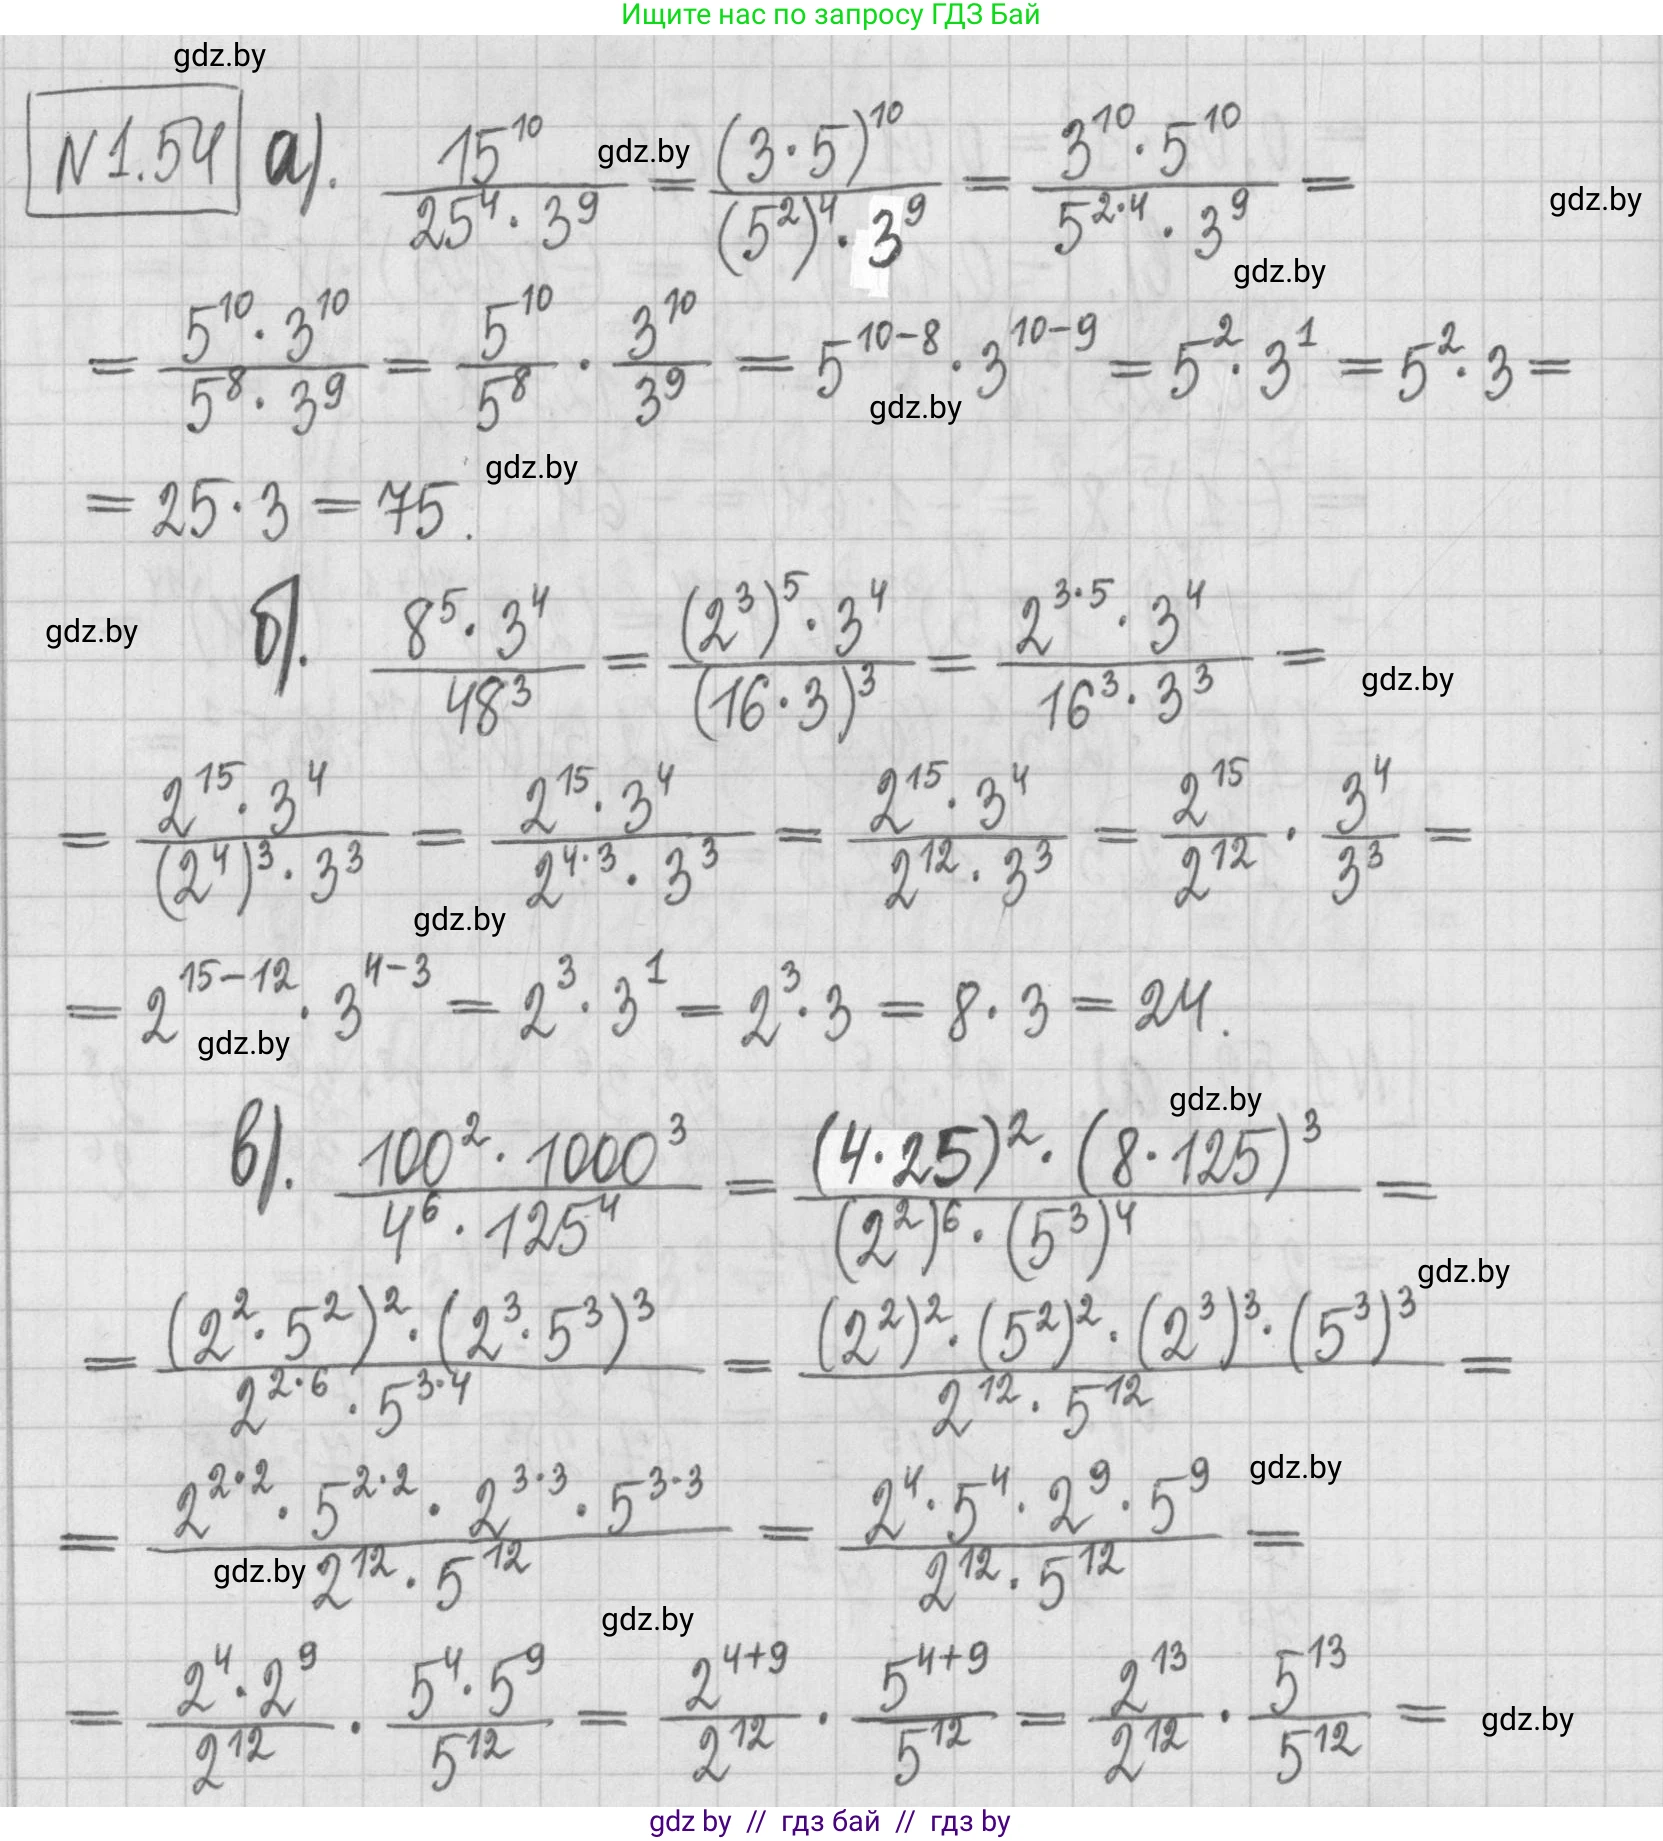 Ищите нас по запросу ГДЗ Бай
gdz.by
N1.54 а). 15^10 / (25^4 · 3^9) = (3·5)^10 / ((5^2)^4 · 3^9) = (3^10 · 5^10) / (5^(2·4) · 3^9) =
gdz.by
gdz.by
gdz.by
= (5^10 · 3^10) / (5^8 · 3^9) = 5^10 / 5^8 · 3^10 / 3^9 = 5^(10-8) · 3^(10-9) = 5^2 · 3^1 = 5^2 · 3 =
gdz.by
gdz.by
= 25 · 3 = 75.
б). (8^5 · 3^4) / 48^3 = ((2^3)^5 · 3^4) / (16·3)^3 = (2^(3·5) · 3^4) / (16^3 · 3^3) =
gdz.by
gdz.by
= (2^15 · 3^4) / ((2^4)^3 · 3^3) = (2^15 · 3^4) / (2^(4·3) · 3^3) = (2^15 · 3^4) / (2^12 · 3^3) = 2^15 / 2^12 · 3^4 / 3^3 =
gdz.by
= 2^(15-12) · 3^(4-3) = 2^3 · 3^1 = 2^3 · 3 = 8 · 3 = 24.
gdz.by
gdz.by
в). (100^2 · 1000^3) / (4^6 · 125^4) = ((4·25)^2 · (8·125)^3) / ((2^2)^6 · (5^3)^4) =
gdz.by
= ((2^2 · 5^2)^2 · (2^3 · 5^3)^3) / (2^(2·6) · 5^(3·4)) = ((2^2)^2 · (5^2)^2 · (2^3)^3 · (5^3)^3) / (2^12 · 5^12) =
gdz.by
= (2^(2·2) · 5^(2·2) · 2^(3·3) · 5^(3·3)) / (2^12 · 5^12) = (2^4 · 5^4 · 2^9 · 5^9) / (2^12 · 5^12) =
gdz.by
gdz.by
= (2^4 · 2^9) / 2^12 · (5^4 · 5^9) / 5^12 = 2^(4+9) / 2^12 · 5^(4+9) / 5^12 = 2^13 / 2^12 · 5^13 / 5^12 =
gdz.by
gdz by // гдз бай // гдз by